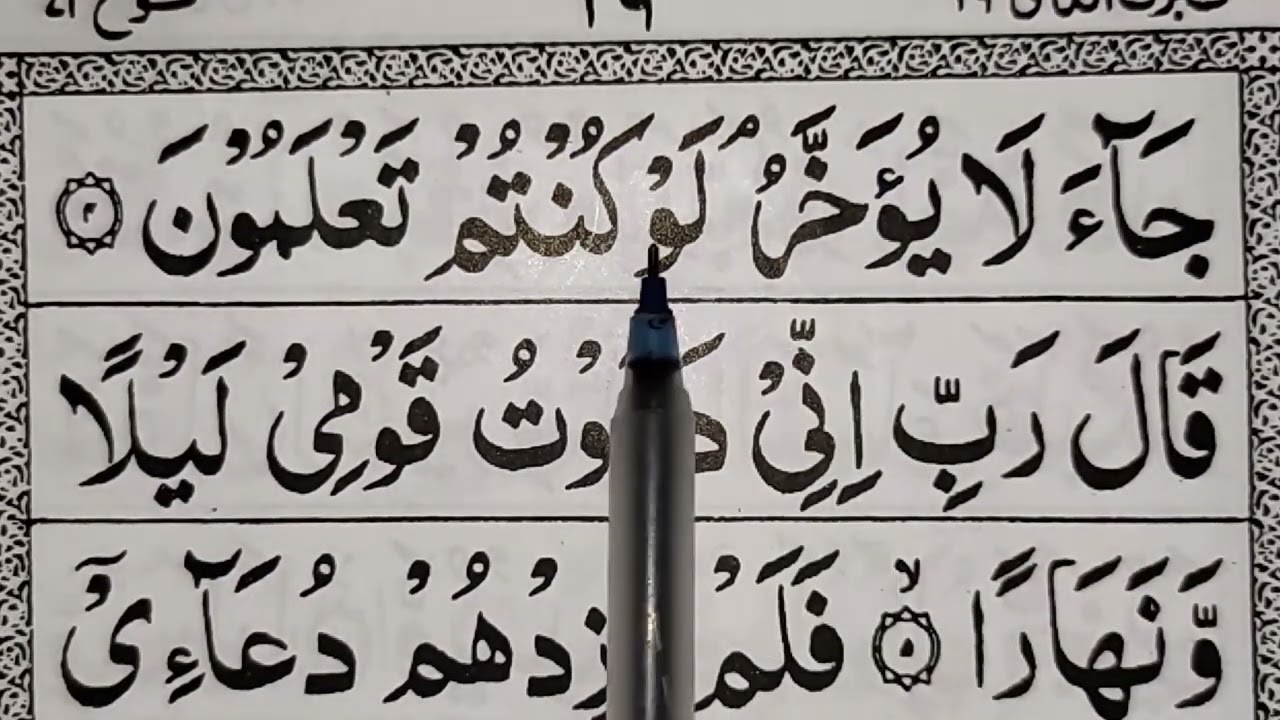 جَآءَ لَا يُؤَخَّرُ ۘ لَوْ كُنْتُمْ تَعْلَمُوْنَ ۴
قَالَ رَبِّ اِنِّىْ دَعَوْتُ قَوْمِىْ لَيْلًا
وَّ نَهَارًا ۙ ۵ فَلَمْ يَزِدْهُمْ دُعَآءِىْۤ